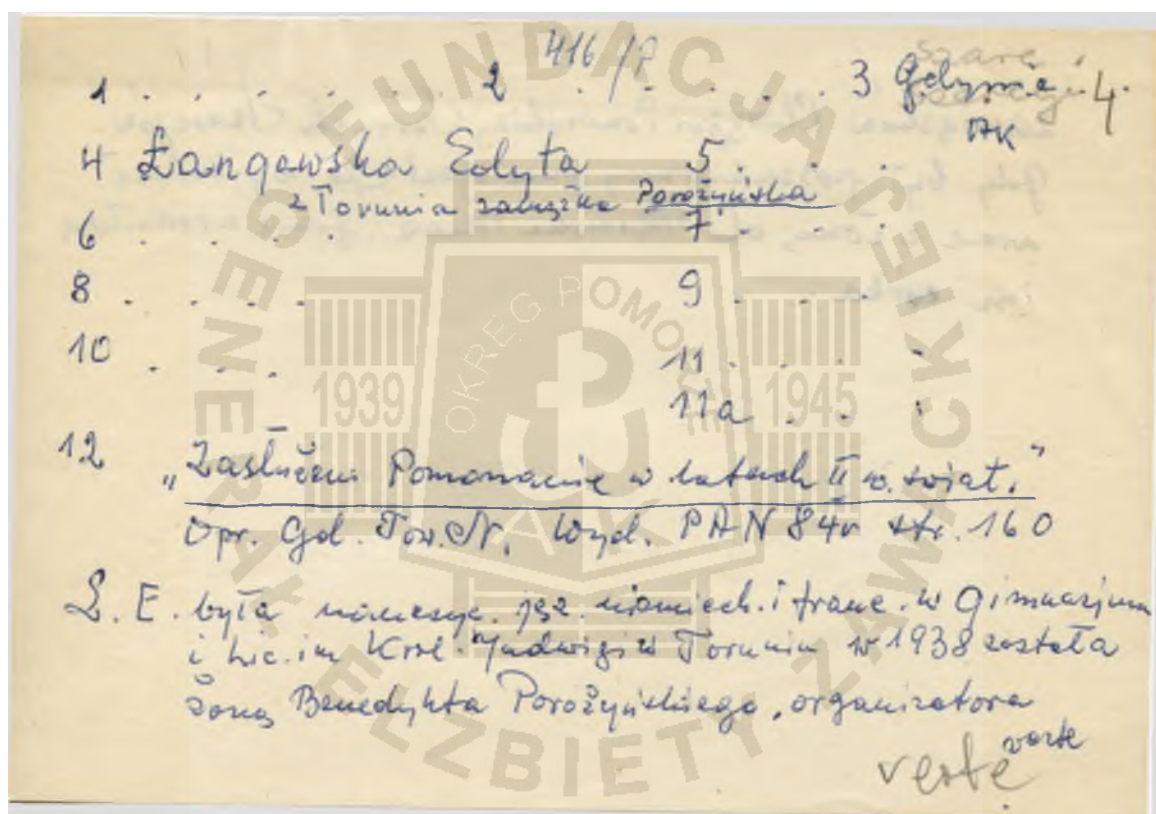 416/P
Szare
1 . . . . . . 2 . . . . . . 3 Gdynia . 4.
AK
4 Łangowska Edyta 5 . . .
z Torunia zamężna Porożyńska
6 . . . . 7 . . .
8 . . . . 9 . . .
10 . . . 11 . . .
11a . . .
12 „Zasłużeni Pomorzanie w latach II w. świat."
Opr. Gd. Tow. N. Wyd. PAN 84r str. 160
Ł. E. była nauczyc. jęz. niemiech. i franc. w Gimnazjum
i Lic. im Król. Jadwigi w Toruniu w 1938 została
żoną Benedykta Porożyńskiego, organizatora
verte
verte
FUNDACJA GENERAŁ ELŻBIETY ZAWACKIEJ
OKRĘG POMORZE
1939 1945
AK